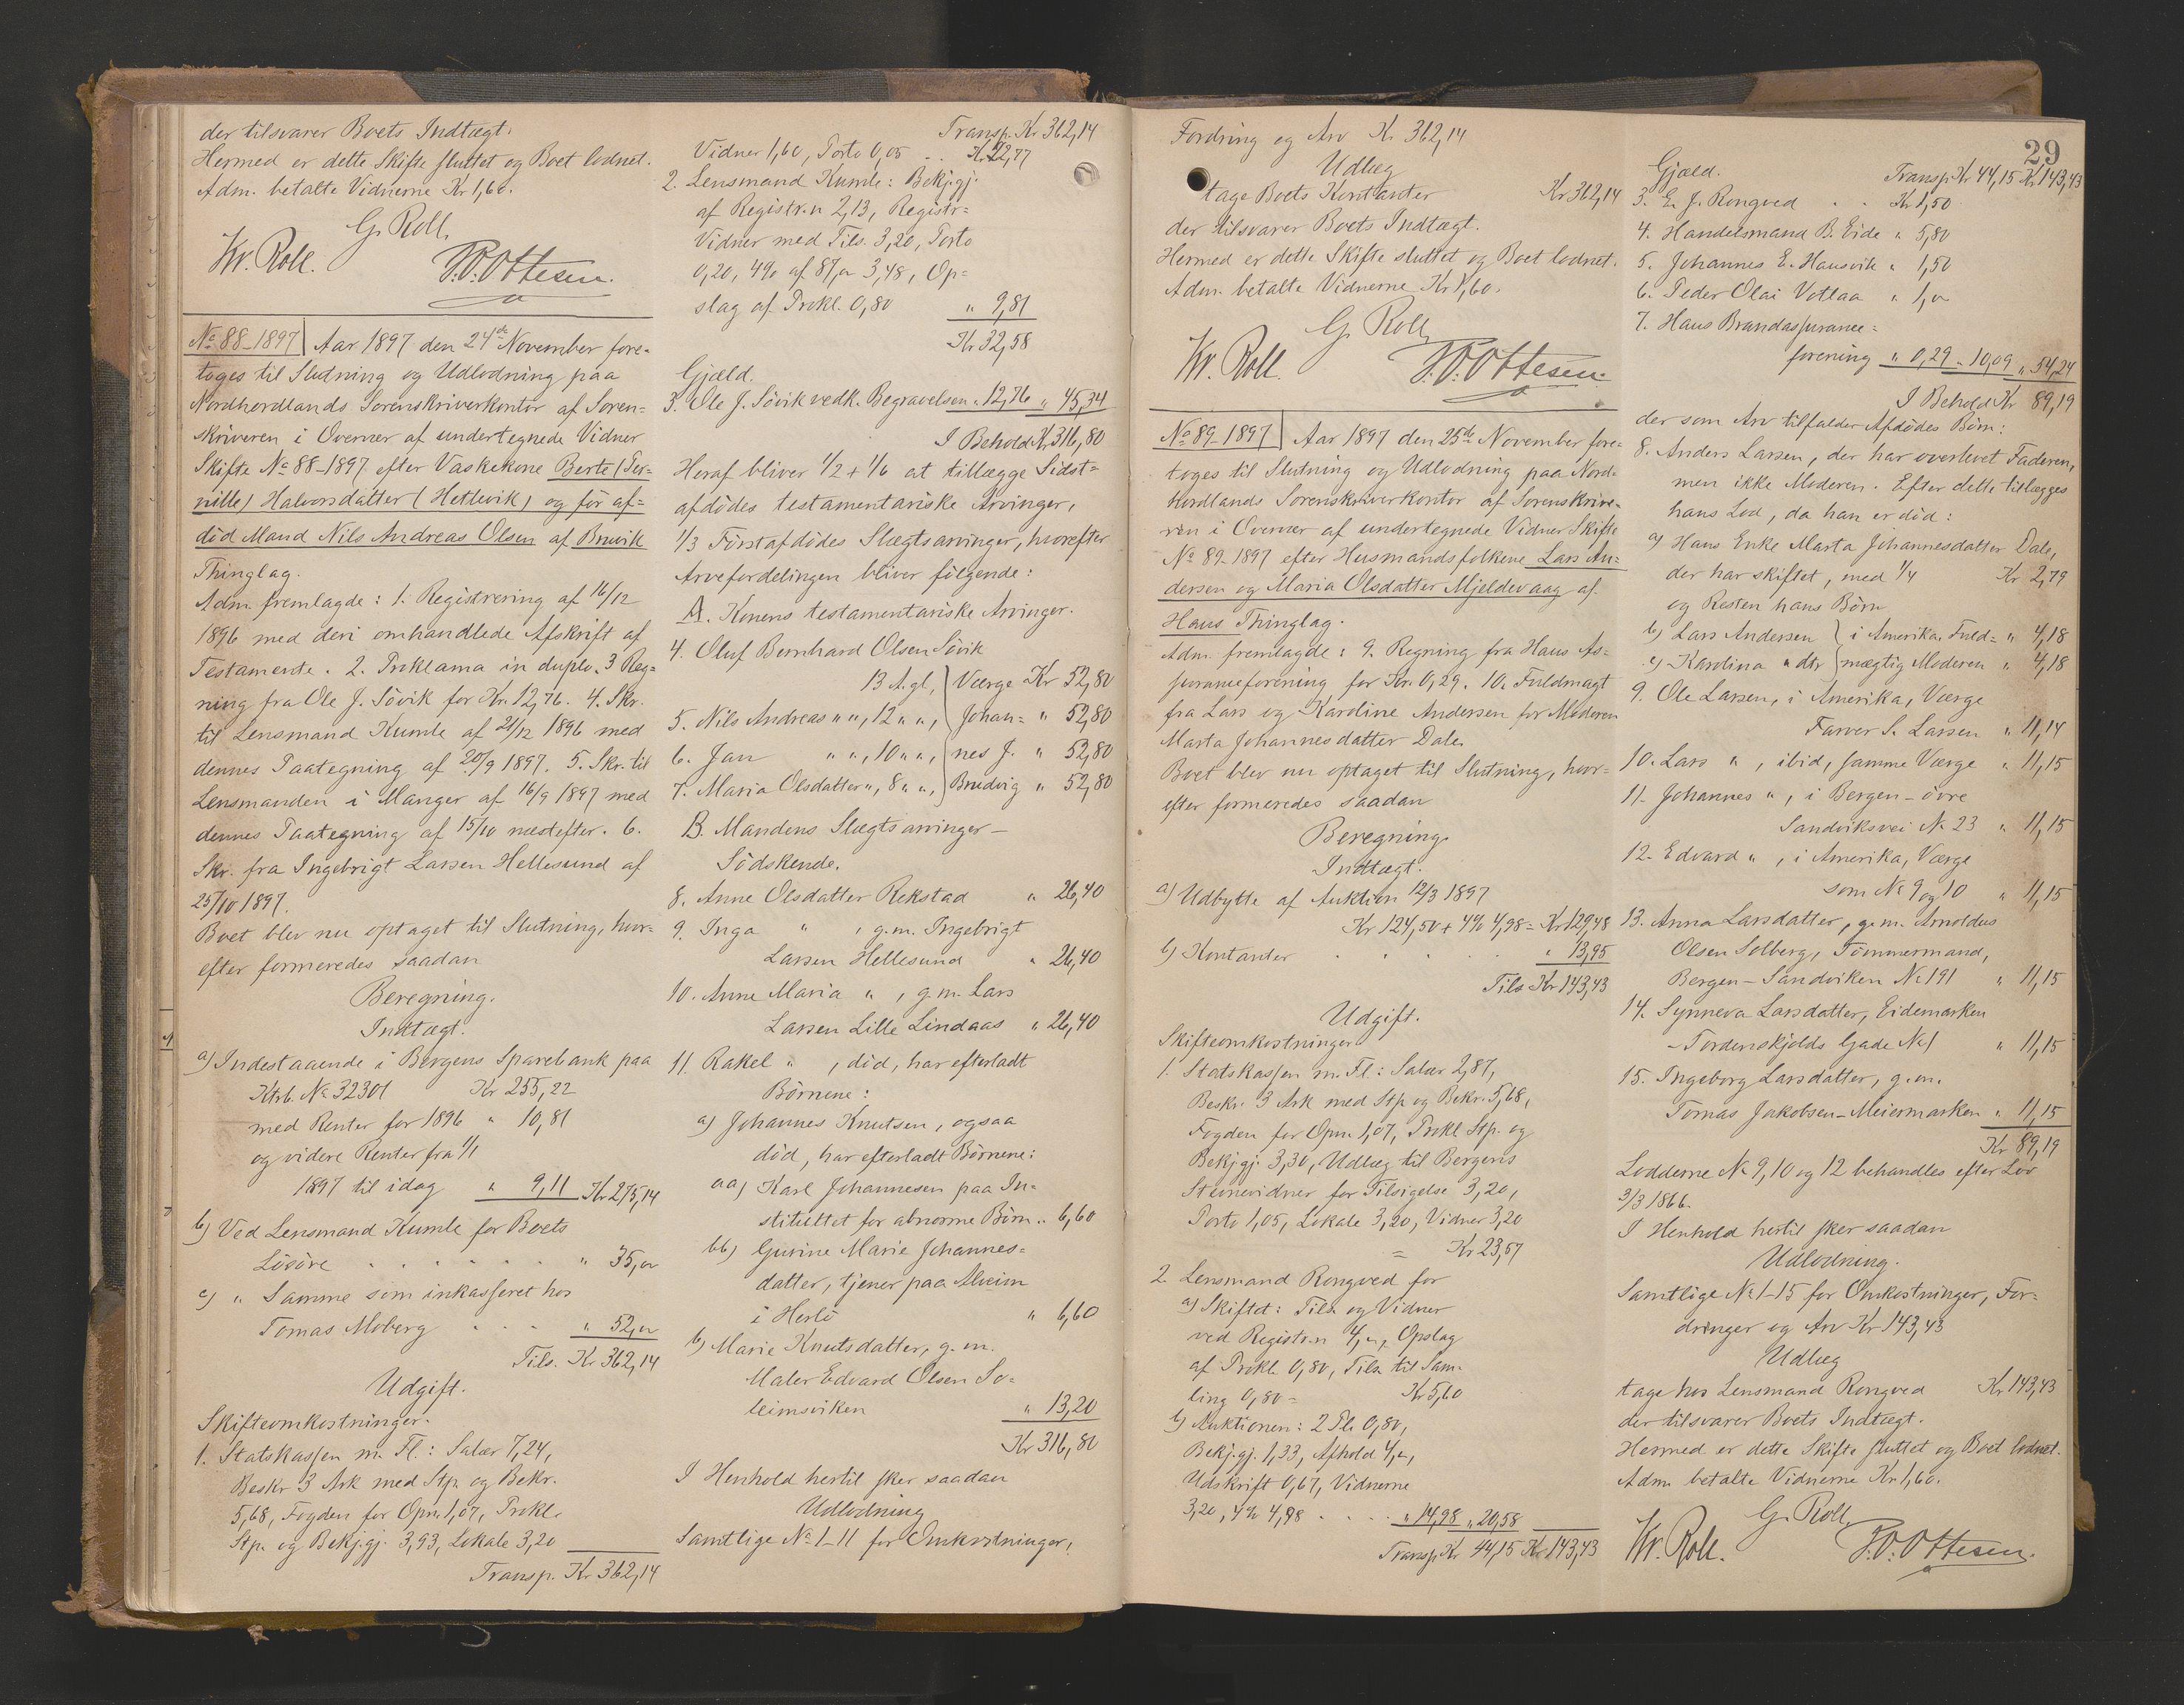 der tilsvarer Boets Indtægt.
Hermed er dette Skifte sluttet og Boet lodnet.
Adm. betalte Vidnerne Kr 1,60.
G. Roll.
Kr. Roll. P.O. Ottesen.
No 88-1897 Aar 1897 den 24de November fore-
toges til Slutning og Udlodning paa
Nordhordlands Sorenskriverkontor af Soren-
skriveren i Overvær af undertegnede Vidner
Skifte No 88-1897 efter Vaskekone Berte (Per-
nille) Halvorsdatter (Hetlevik) og før af-
død Mand Nils Andreas Olsen af Bruvik
Thinglag.
Adm. fremlagde: 1. Registrering af 16/12
1896 med deri omhandlede Afskrift af
Testamente. 2. Proklama in duplo. 3 Reg-
ning fra Ole J. Søvik for Kr. 12,76. 4. Skr.
til Lensmand Kumle af 21/12 1896 med
dennes Paategning af 20/9 1897. 5. Skr. til
Lensmanden i Manger af 16/9 1897 med
dennes Paategning af 15/10 næstefter. 6.
Skr. fra Ingebrigt Larsen Hellesund af
25/10 1897.
Boet blev nu optaget til Slutning, hvor-
efter formeredes saadan
Beregning.
Indtægt.
a) Indestaaende i Bergens Sparebank paa
Ktrb. No 32301 Kr 255,22
med Renter for 1896 " 10,81
og videre Renter fra 1/1
1897 til idag " 9,11 Kr 275,14
b) Ved Lensmand Kumle for Boets
Løsøre . . . . . . " 35,00
c) " Samme som inkasseret hos
Tomas Moberg . . . " 52,00
Tils. Kr 362,14
Udgift.
Skifteomkostninger.
1. Statskassen m. Fl.: Salær 7,24,
Beskr. 3 Ark med Stp. og Bekr.
5,68, Fogden for Opn. 1,07, Prokl.
Stp. og Bekj.gj. 3,93, Lokale 3,20
Transp. Kr 362,14
Transp. Kr 362,14
Vidner 1,60, Porto 0,05 . . Kr 22,77
2. Lensmand Kumle: Bekj.gj.
af Registr.n 2,13, Registr-
Vidner med Tils. 3,20, Porto
0,20, 4% af 87,00 3,48, Op-
slag af Prokl. 0,80 " 9,81
Kr 32,58
Gjæld.
3. Ole J. Søvik vedk. Begravelsen " 12,76 " 45,34
I Behold Kr 316,80
Heraf bliver 1/2 + 1/6 at tillægge Sidst-
afdødes testamentariske Arvinger,
1/3 Førstafdødes Slægtsarvinger, hvorefter
Arvefordelingen bliver følgende:
A. Konens testamentariske Arvinger.
4. Oluf Bernhard Olsen Søvik
13 A. gl., Værge Kr 52,80
5. Nils Andreas " ", 12 " ", Johan- " 52,80
6. Jan " ", 10 " ", nes J. " 52,80
7. Maria Olsdatter ", 8 " ", Brudvig " 52,80
B. Mandens Slægtsarvinger -
Sødskende.
8. Anne Olsdatter Rekstad " 26,40
9. Inga " , g. m. Ingebrigt
Larsen Hellesund " 26,40
10. Anne Maria " , g. m. Lars
Larsen Lille Lindaas " 26,40
11. Rakel " , død, har efterladt
Børnene:
a) Johannes Knutsen, ogsaa
død, har efterladt Børnene:
aa) Karl Johannesen paa In-
stituttet for abnorme Børn " 6,60
bb) Gurine Marie Johannes-
datter, tjener paa Alveim
i Herlø " 6,60
b) Marie Knutsdatter, g. m.
Maler Edvard Olsen So-
leimsviken " 13,20
Kr 316,80
I Henhold hertil sker saadan
Udlodning
Samtlige No 1-11 for Omkostninger,
Fordring og Arv Kr 362,14
Udlæg
tage Boets Kontanter Kr 362,14
der tilsvarer Boets Indtægt.
Hermed er dette Skifte sluttet og Boet lodnet.
Adm. betalte Vidnerne Kr 1,60.
G. Roll.
Kr. Roll. P.O. Ottesen.
No 89-1897 Aar 1897 den 25de November fore-
toges til Slutning og Udlodning paa Nord-
hordlands Sorenskriverkontor af Sorenskrive-
ren i Overvær af undertegnede Vidner Skifte
No 89-1897 efter Husmandsfolkene Lars An-
dersen og Maria Olsdatter Mjeldevaag af
Haus Thinglag.
Adm. fremlagde: 9. Regning fra Haus As-
suranceforening for Kr. 0,29. 10. Fuldmagt
fra Lars og Karoline Andersen for Moderen
Marta Johannesdatter Dale.
Boet blev nu optaget til Slutning, hvor-
efter formeredes saadan
Beregning.
Indtægt.
a) Udbytte af Auktion 12/3 1897
Kr 124,50 + 4% 4,98 = Kr 129,48
b) Kontanter . . . . " 13,95
Tils. Kr 143,43
Udgift.
Skifteomkostninger
1. Statskassen m. Fl.: Salær 2,87,
Beskr. 3 Ark med Stp. og Bekr. 5,68,
Fogden for Opn. 1,07, Prokl. Stp. og
Bekj.gj. 3,30, Udlæg til Bergens
Stevnevidner for Tilsigelse 3,20,
Porto 1,05, Lokale 3,20, Vidner 3,20
= Kr 23,57
2. Lensmand Rongved for
a) Skiftet: Tils. og Vidner
ved Registr.n 4,00, Opslag
af Prokl. 0,80, Tils. til Sam-
ling 0,80 = Kr 5,60
b) Auktionen: 2 Pl. 0,80,
Bekj.gj. 1,33, Afhold 4,00,
Udskrift 0,67, Vidnerne
3,20, 4% 4,98 . . . . " 14,98 " 20,58
Transp. Kr 44,15 Kr 143,43
29
Gjæld. Transp. Kr 44,15 Kr 143,43
3. E. J. Rongved . . Kr 1,50
4. Handelsmand B. Eide " 5,80
5. Johannes E. Hausvik " 1,50
6. Peder Olai Votlaa " 1,00
7. Haus Brandassurance-
forening " 0,29 " 10,09 " 54,24
I Behold Kr 89,19
der som Arv tilfalder Afdødes Børn:
8. Anders Larsen, der har overlevet Faderen,
men ikke Moderen. Efter dette tillægges
hans Lod, da han er død:
a) Hans Enke Marta Johannesdatter Dale,
der har skiftet, med 1/4 Kr 2,79
og Resten hans Børn
b) Lars Andersen i Amerika. Fuld- " 4,18
c) Karolina " dtr mægtig Moderen " 4,18
9. Ole Larsen, i Amerika, Værge
Farver S. Larsen " 11,14
10. Lars " , ibid, samme Værge " 11,15
11. Johannes " , i Bergen - øvre
Sandviksvei No 23 " 11,15
12. Edvard " , i Amerika, Værge
som No 9 og 10 " 11,15
13. Anna Larsdatter, g. m. Arnoldus
Olsen Solberg, Tømmermand,
Bergen - Sandviken No 191 " 11,15
14. Synneva Larsdatter, Eidemarken
- Tordenskjolds Gade No 1 " 11,15
15. Ingeborg Larsdatter, g. m.
Tomas Jakobsen - Meiermarken " 11,15
Kr 89,19
Lodderne No 9, 10 og 12 behandles efter Lov
3/3 1866.
I Henhold hertil sker saadan
Udlodning.
Samtlige No 1-15 for Omkostninger, For-
dringer og Arv Kr 143,43
Udlæg
tage hos Lensmand Rongved Kr 143,43
der tilsvarer Boets Indtægt.
Hermed er dette Skifte sluttet og Boet lodnet.
Adm. betalte Vidnerne Kr 1,60.
G. Roll.
Kr. Roll. P.O. Ottesen.